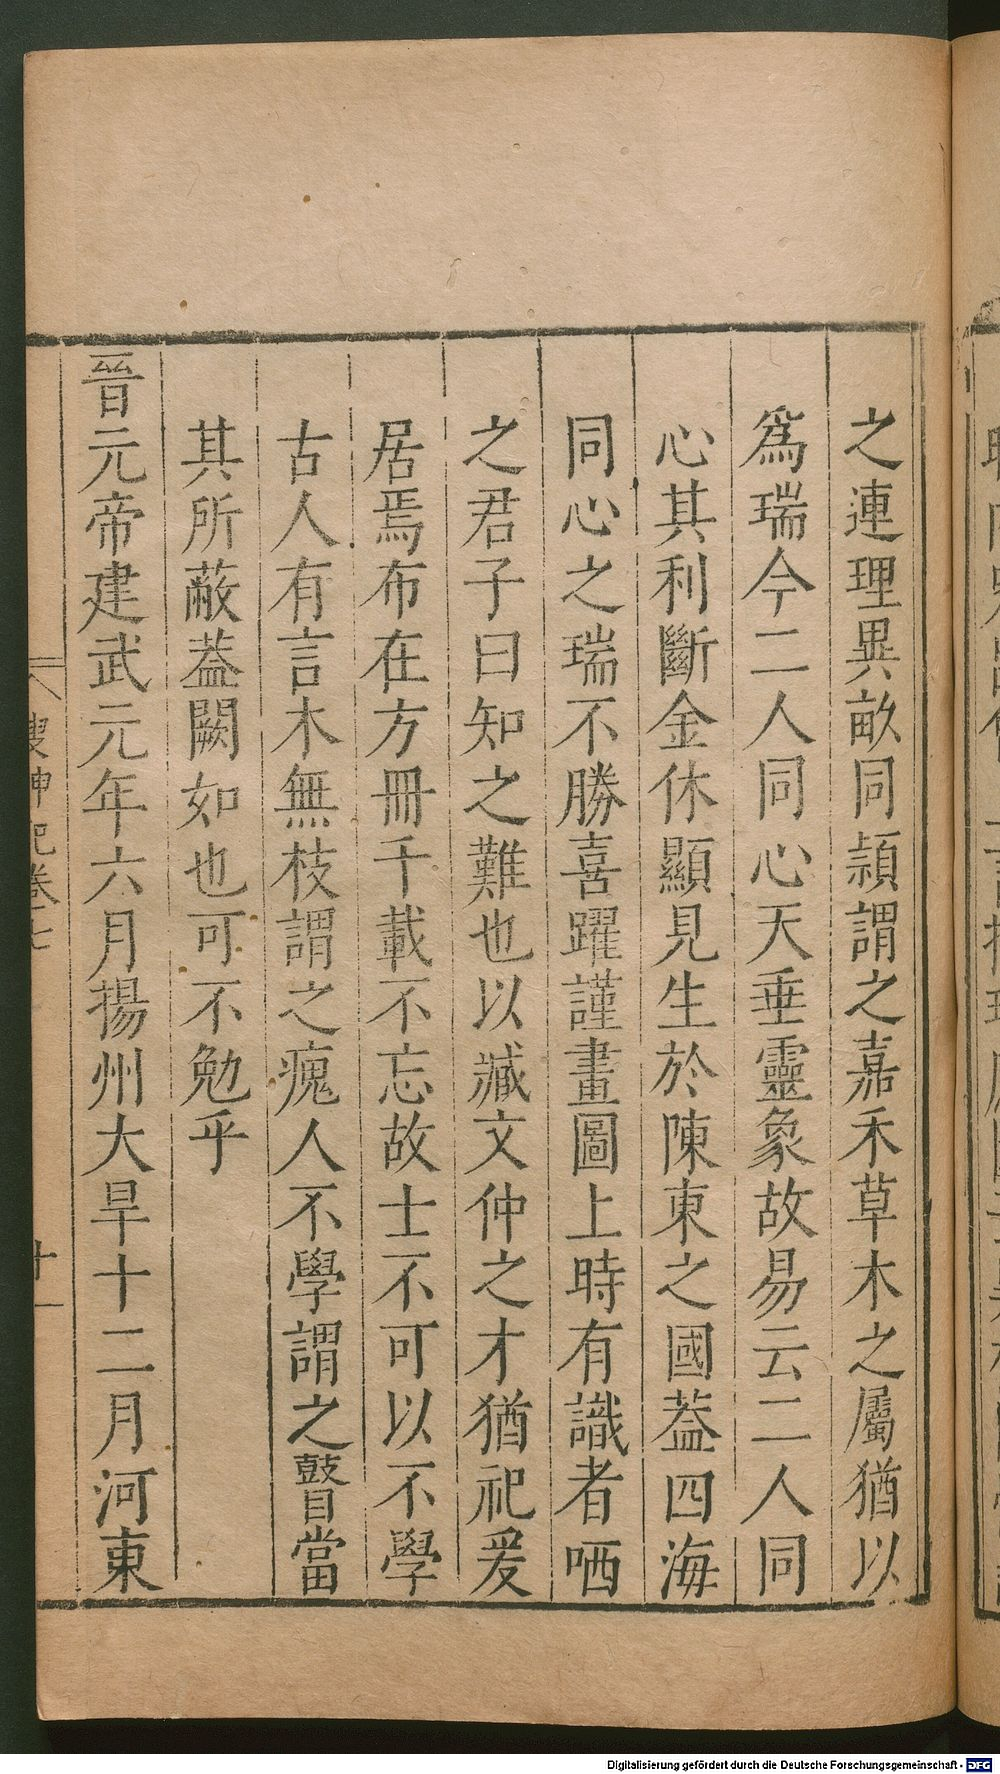 之連理異畝同頴謂之嘉禾草木之屬猶以
爲瑞今二人同心天垂靈象故易云二人同
心其利斷金休顯見生於陳東之國葢四海
同心之瑞不勝喜躍謹畫圖上時有識者哂
之君子曰知之難也以臧文仲之才猶祀爰
居焉布在方冊千載不忘故士不可以不學
古人有言木無枝謂之瘣人不學謂之瞽當
其所蔽葢闕如也可不勉乎
晉元帝建武元年六月揚州大旱十二月河東
搜神記卷七
十一
Digitalisierung gefördert durch die Deutsche Forschungsgemeinschaft - DFG